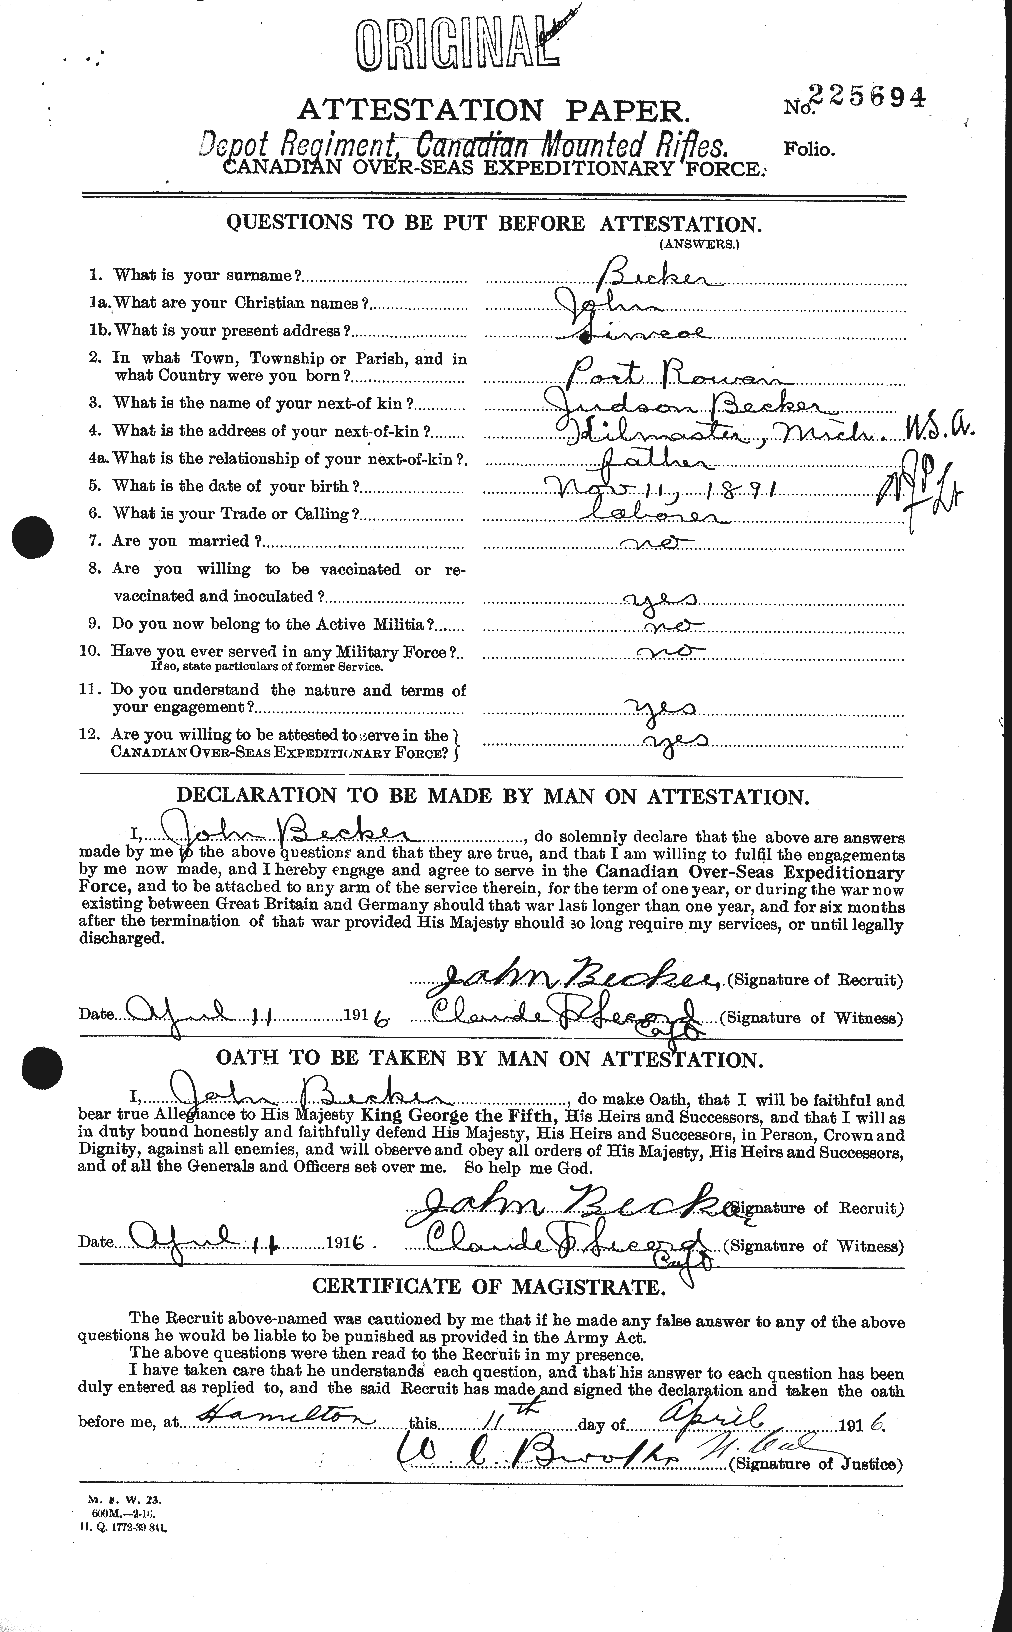 ORIGINAL
ATTESTATION PAPER.
No. 225694
Depot Regiment, Canadian Mounted Rifles.
Folio.
CANADIAN OVER-SEAS EXPEDITIONARY FORCE.
QUESTIONS TO BE PUT BEFORE ATTESTATION.
(ANSWERS.)
1. What is your surname? Becker
1a. What are your Christian names? John
1b. What is your present address? Simcoe
2. In what Town, Township or Parish, and in
what Country were you born? Port Rowan
3. What is the name of your next-of kin? Judson Becker
4. What is the address of your next-of-kin? Hilmaster, Mich. U.S.A.
4a. What is the relationship of your next-of-kin? father
5. What is the date of your birth? Nov 11, 1891
6. What is your Trade or Calling? laborer
7. Are you married? no
8. Are you willing to be vaccinated or re-
vaccinated and inoculated? yes
9. Do you now belong to the Active Militia? no
10. Have you ever served in any Military Force? no
If so, state particulars of former Service.
11. Do you understand the nature and terms of
your engagement? yes
12. Are you willing to be attested to serve in the
CANADIAN OVER-SEAS EXPEDITIONARY FORCE? yes
DECLARATION TO BE MADE BY MAN ON ATTESTATION.
I, John Becker, do solemnly declare that the above are answers
made by me to the above questions and that they are true, and that I am willing to fulfil the engagements
by me now made, and I hereby engage and agree to serve in the Canadian Over-Seas Expeditionary
Force, and to be attached to any arm of the service therein, for the term of one year, or during the war now
existing between Great Britain and Germany should that war last longer than one year, and for six months
after the termination of that war provided His Majesty should so long require my services, or until legally
discharged.
John Becker (Signature of Recruit)
Date April 11 1916 Claude Secord (Signature of Witness)
Capt
OATH TO BE TAKEN BY MAN ON ATTESTATION.
I, John Becker, do make Oath, that I will be faithful and
bear true Allegiance to His Majesty King George the Fifth, His Heirs and Successors, and that I will as
in duty bound honestly and faithfully defend His Majesty, His Heirs and Successors, in Person, Crown and
Dignity, against all enemies, and will observe and obey all orders of His Majesty, His Heirs and Successors,
and of all the Generals and Officers set over me. So help me God.
John Becker (Signature of Recruit)
Date April 11 1916. Claude Secord (Signature of Witness)
Capt
CERTIFICATE OF MAGISTRATE.
The Recruit above-named was cautioned by me that if he made any false answer to any of the above
questions he would be liable to be punished as provided in the Army Act.
The above questions were then read to the Recruit in my presence.
I have taken care that he understands each question, and that his answer to each question has been
duly entered as replied to, and the said Recruit has made and signed the declaration and taken the oath
before me, at Hamilton this 11th day of April 1916.
W C (Signature of Justice)
M. & W. 23.
600M.—2-16.
H. Q. 1772-39 841.